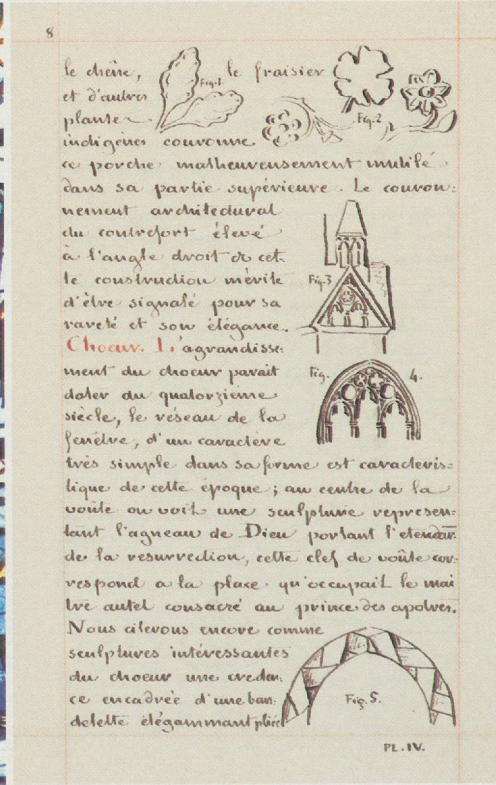 8
le chêne, Fig.1. le fraisier
et d'autres
plantes Fig.2
indigènes couronne
ce porche malheureusement mutilé
dans sa partie supérieure. Le couron:
nement architectural
du contrefort élevé
à l'angle droit de cet-
te construction mérite Fig.3
d'être signalé pour sa
rareté et son élégance.
Choeur. L'agrandisse:
ment du choeur parait Fig. 4.
dater du quatorzième
siècle, le réseau de la
fenêtre, d'un caractère
très simple dans sa forme est caractéris=
tique de cette époque; au centre de la
voûte on voit une sculpture représen=
tant l'agneau de Dieu portant l'étendar
de la resurrection, cette clef de voûte cor=
respond a la place qu'occupait le mai
tre autel consacré au prince des apotres.
Nous citerons encore comme
sculptures intéressantes
du choeur une creden:
ce encadrée d'une ban: Fig.5.
delette élégammant pliée
PL.IV.